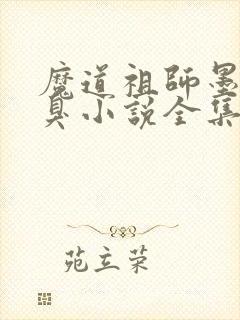 魔道祖師墨
臭小説全集
苑立荣